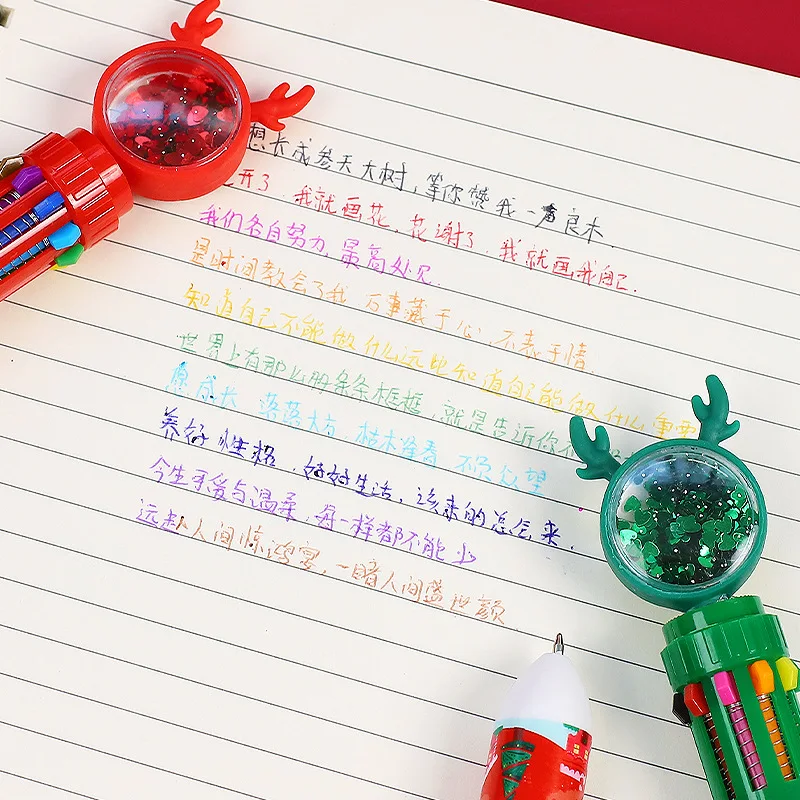 想长成参天大树，等你赞我一声良木.
开了，我就画花，花谢了，我就画我自己.
我们各自努力，最高处见
是时间教会了我 万事藏于心，不表于情.
知道自己不能做什么远比知道自己能做什么重要
世界上有那么多条条框框，就是告诉你不
愿成长，落落大方，枯木逢春，不负众望
养好性格，好好生活，该来的总会来.
今生可爱与温柔，每一样都不能少
远赴人间惊鸿宴，一睹人间盛世颜